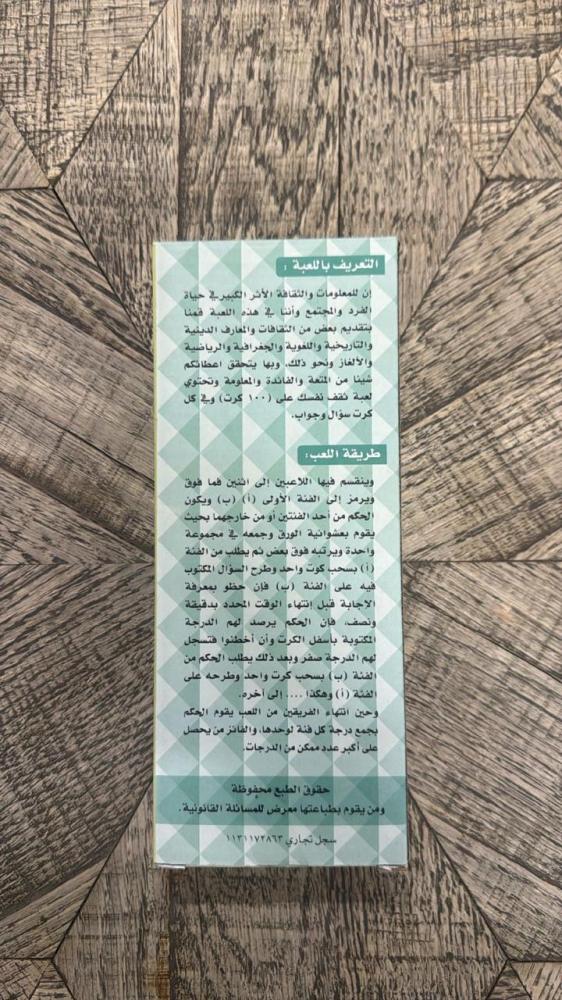 التعريف باللعبة :
إن للمعلومات والثقافة الأثر الكبير في حياة
الفرد والمجتمع وأننا في هذه اللعبة قمنا
بتقديم بعض من الثقافات والمعارف الدينية
والتاريخية واللغوية والجغرافية والرياضية
والألغاز ونحو ذلك، وبها يتحقق اعطائكم
شيئا من المتعة والفائدة والمعلومة وتحتوي
لعبة ثقف نفسك على (١٠٠ كرت) وفي كل
كرت سؤال وجواب.
طريقة اللعب:
وينقسم فيها اللاعبين إلى اثنين فما فوق
ويرمز إلى الفئة الأولى (أ) (ب) ويكون
الحكم من أحد الفئتين أو من خارجهما بحيث
يقوم بعشوائية الورق وجمعه في مجموعة
واحدة ويرتبه فوق بعض ثم يطلب من الفئة
(أ) بسحب كوت واحد وطرح السؤال المكتوب
فيه على الفئة (ب) فإن حظو بمعرفة
الاجابة قبل إنتهاء الوقت المحدد بدقيقة
ونصف، فإن الحكم يرصد لهم الدرجة
المكتوبة بأسفل الكرت وأن أخطئوا فتسجل
لهم الدرجة صفر وبعد ذلك يطلب الحكم من
الفئة (ب) بسحب كرت واحد وطرحه على
الفئة (أ) وهكذا .... إلى أخره.
وحين انتهاء الفريقين من اللعب يقوم الحكم
بجمع درجة كل فئة لوحدها، والفائز من يحصل
على أكبر عدد ممكن من الدرجات.
حقوق الطبع محفوظة
ومن يقوم بطباعتها معرض للمسائلة القانونية.
سجل تجاري ١١٣١١٧٢٨٦٣